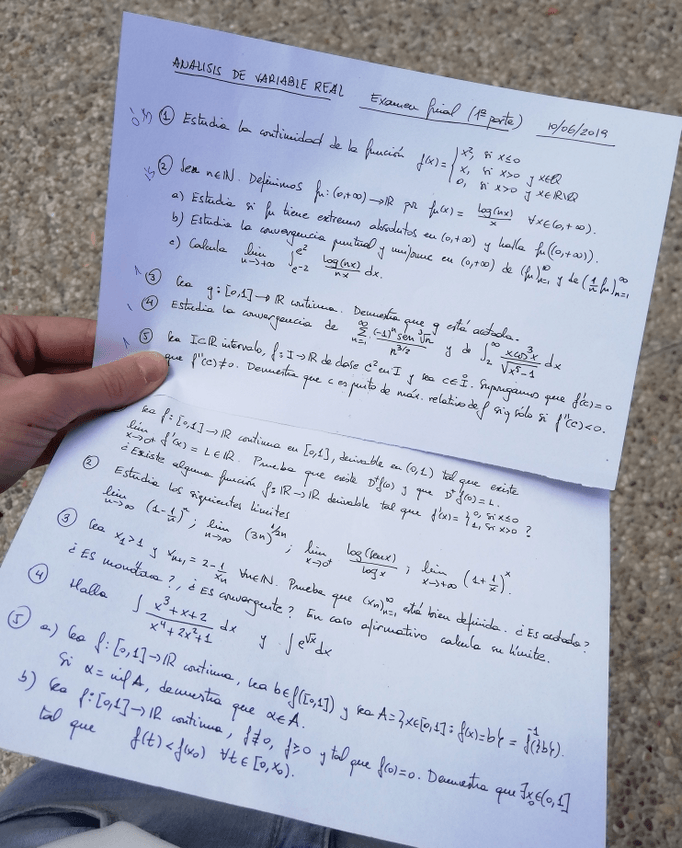 ANALISIS DE VARIABLE REAL Examen final (1ª parte) 10/06/2019
① Estudia la continuidad de la función f(x) = { x², si x≤0
x, si x>0 y x∈ℚ
0, si x>0 y x∈ℝ\ℚ
② Sea n∈ℕ. Definimos fn: (0,+∞) → ℝ por fn(x) = log(nx)/x ∀x∈(0,+∞).
a) Estudia si fn tiene extremos absolutos en (0,+∞) y halla fn((0,+∞)).
b) Estudia la convergencia puntual y uniforme en (0,+∞) de (fn)_{n=1}^∞ y de (1/n fn)_{n=1}^∞
c) Calcula lim_{n→+∞} ∫_{e^-2}^{e^2} log(nx)/nx dx.
③ Sea g: [0,1] → ℝ continua. Demuestra que g está acotada.
④ Estudia la convergencia de ∑_{n=1}^∞ (-1)^n sen √n / n^{3/2} y de ∫_2^∞ / √(x^5-1) dx
⑤ Sea I⊂ℝ intervalo, f: I→ℝ de clase C² en I y sea c∈I̊. Supongamos que f'(c)=0
y que f''(c)≠0. Demuestra que c es punto de máx. relativo de f si y sólo si f''(c)<0.
Sea f: [0,1] → ℝ continua en [0,1], derivable en (0,1) tal que existe
lim_{x→0+} f'(x) = L∈ℝ. Prueba que existe D⁺f(0) y que D⁺f(0)=L.
¿Existe alguna función f: ℝ→ℝ derivable tal que f'(x) = { 0, si x≤0
1, si x>0 ?
② Estudia los siguientes límites
lim_{n→∞} (1-1/n)^n ; lim_{n→∞} (3n)^{1/2n} ; lim_{x→0+} log(senx)/log x ; lim_{x→+∞} (1+1/x)^x
③ Sea x₁>1 y x_{n+1} = 2-1/xn ∀n∈ℕ. Prueba que (xn)_{n=1}^∞ está bien definida. ¿Es acotada?
¿Es monótona?, ¿Es convergente? En caso afirmativo calcula su límite.
④ Halla ∫ x³+x+2 / x⁴+2x²+1 dx y ∫ e^{√x} dx
⑤ a) Sea f: [0,1] → ℝ continua, sea b∈f([0,1]) y sea A={x∈[0,1]: f(x)=b} = f⁻¹({b}).
Si α = inf A, demuestra que α∈A.
b) Sea f: [0,1] → ℝ continua, f≢0, f≥0 y tal que f(0)=0. Demuestra que ∃x₀∈(0,1]
tal que f(t)<f(x₀) ∀t∈[0,x₀).